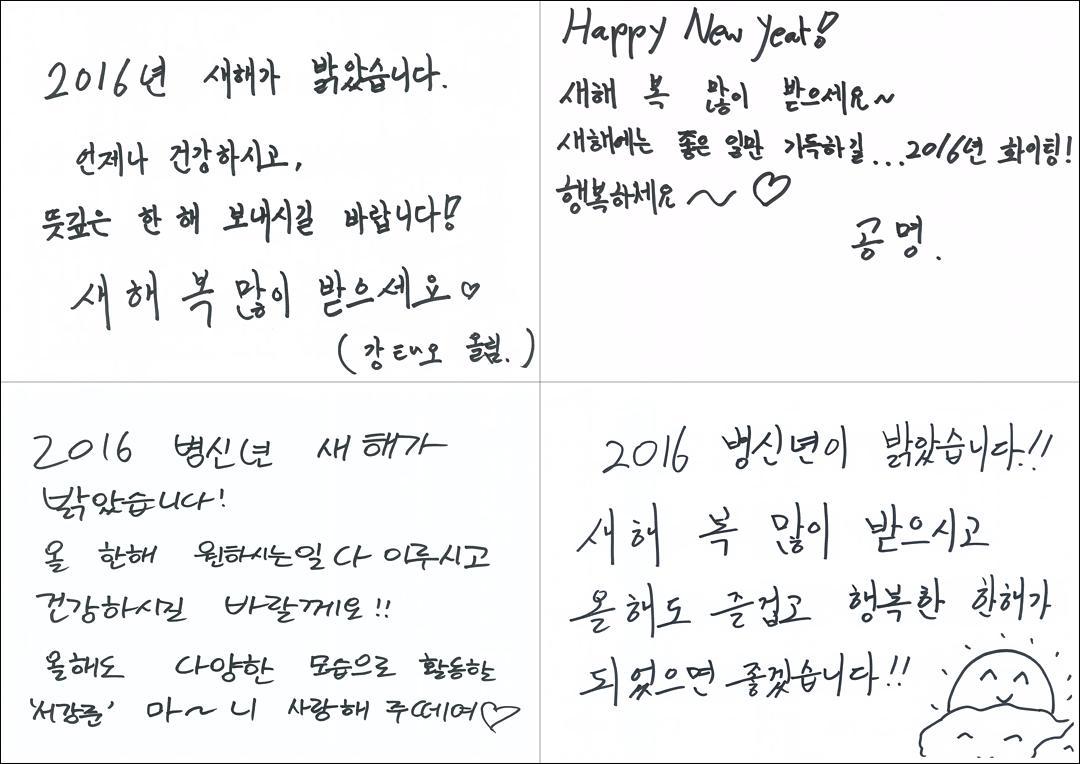 2016년 새해가 밝았습니다.
언제나 건강하시고,
뜻깊은 한 해 보내시길 바랍니다!
새해 복 많이 받으세요♡
(강태오 올림.)
Happy New Year!
새해 복 많이 받으세요~
새해에는 좋은 일만 가득하길...2016년 화이팅!
행복하세요~♡
공명.
2016 병신년 새해가
밝았습니다!
올 한해 원하시는일 다 이루시고
건강하시길 바랄께요!!
올해도 다양한 모습으로 활동할
'서강준' 마~니 사랑해 주떼여♡
2016 병신년이 밝았습니다!!
새해 복 많이 받으시고
올해도 즐겁고 행복한 한해가
되었으면 좋겠습니다!!